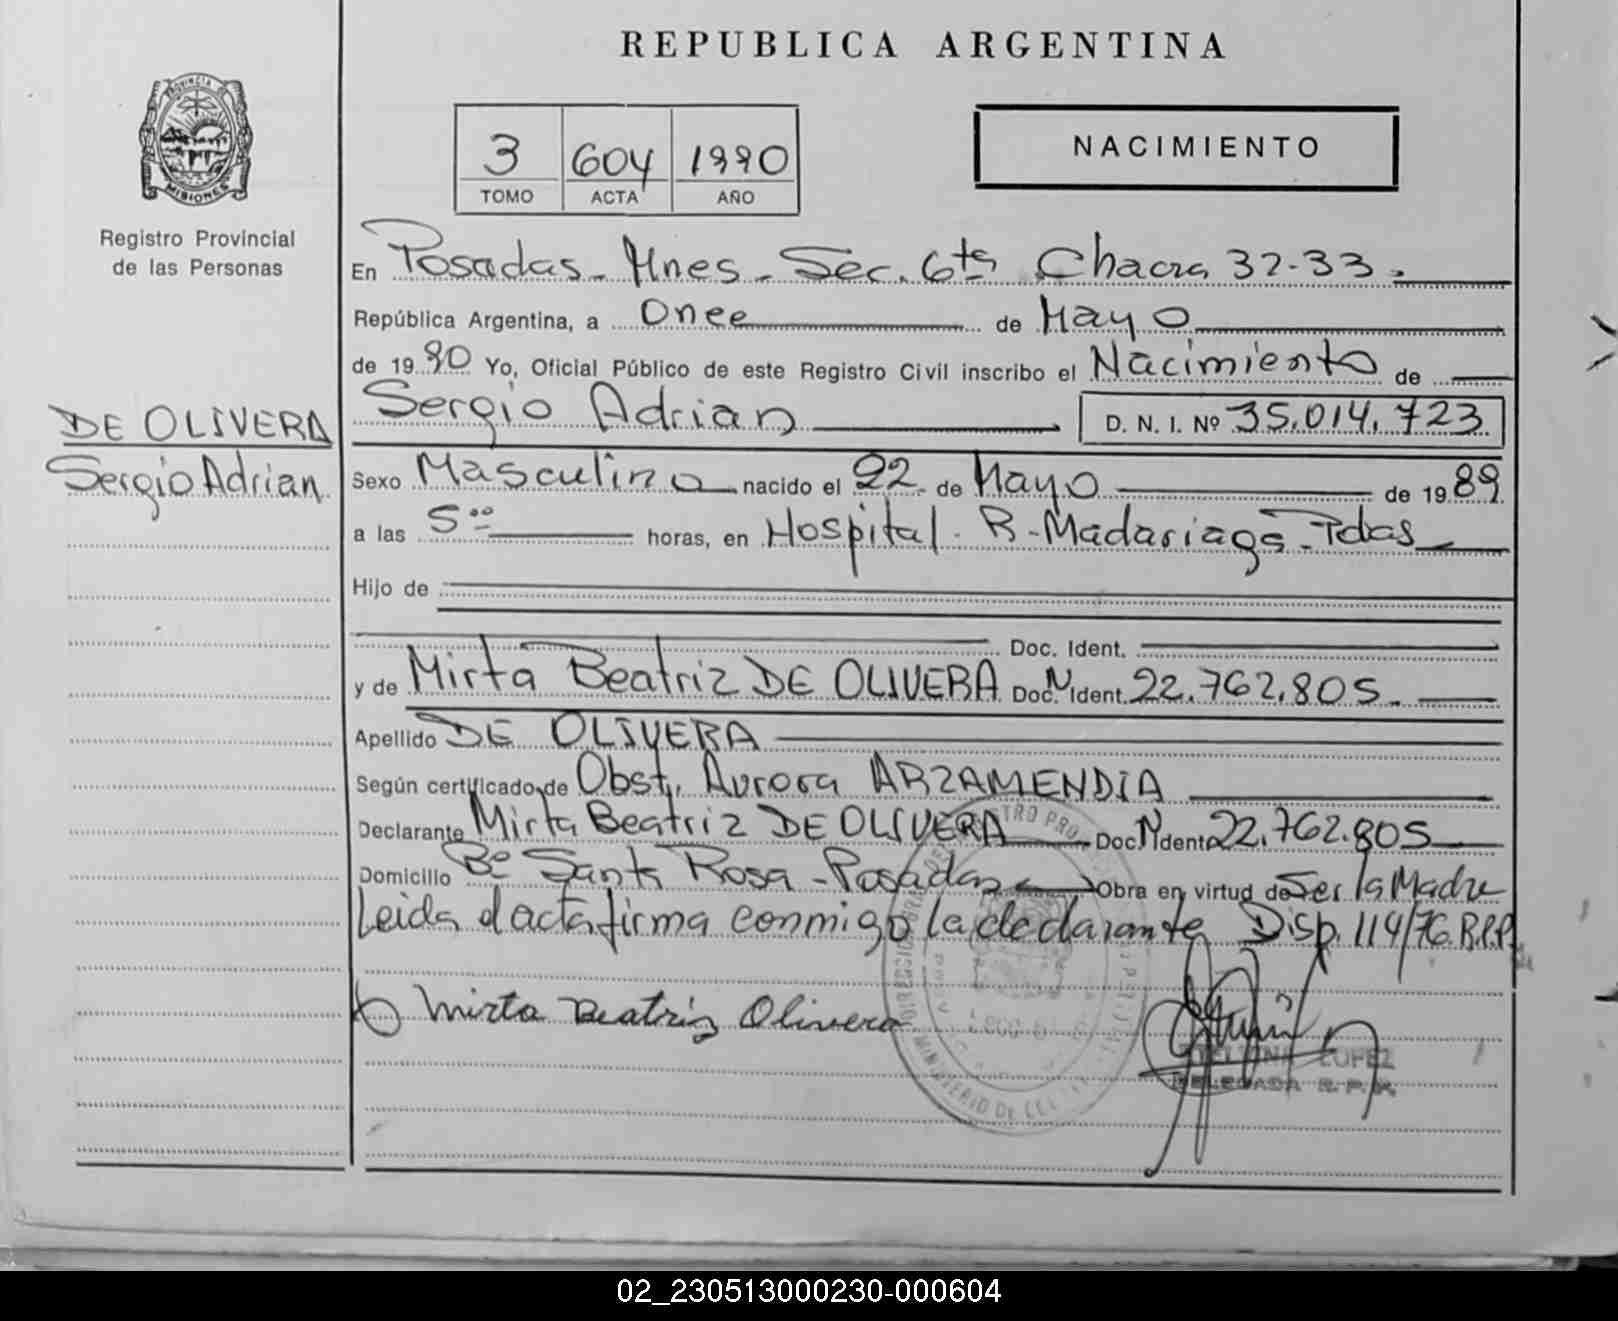 REPUBLICA ARGENTINA
PROVINCIA DE
MISIONES
Registro Provincial
de las Personas
3 604 1990
TOMO ACTA AÑO
NACIMIENTO
En Posadas - Mnes - Sec. 6ta Chacra 32-33.
República Argentina, a Once de Mayo
de 1990 Yo, Oficial Público de este Registro Civil inscribo el Nacimiento de
Sergio Adrian D. N. I. Nº 35.014.723
DE OLIVERA
Sergio Adrian
Sexo Masculino nacido el 22 de Mayo de 1989
a las 5°° horas, en Hospital. R. Madariaga - Pdas
Hijo de
Doc. Ident.
y de Mirta Beatriz DE OLIVERA Doc. N Ident. 22.762.805.
Apellido DE OLIVERA
Según certificado de Obst. Aurora ARZAMENDIA
Declarante Mirta Beatriz DE OLIVERA Doc. N Ident. 22.762.805
Domicilio Bº Santa Rosa - Posadas Obra en virtud de Ser la Madre
Leida el acta firma conmigo la declarante Disp. 114/76. R.P.P.
Mirta Beatriz Olivera
LOPEZ
DELEGADA R. P. P.
MINISTERIO DE
02_230513000230-000604